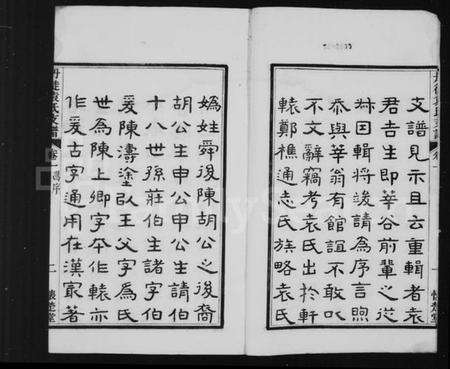 支譜見示且云重輯者袁
君吉生即華谷前輩之從
林因輯將竣請為序言煦
忝與華翁有館誼不敢以
不文辭竊考袁氏出於軒
轅鄭樵通志氏族略袁氏
媯姓舜後陳胡公之後裔
胡公生申公申公生請伯
十八世孫莊伯生諸字伯
爰陳濤塗以王父字為氏
世為陳上卿字本作轅亦
作爰古字通用在漢最著